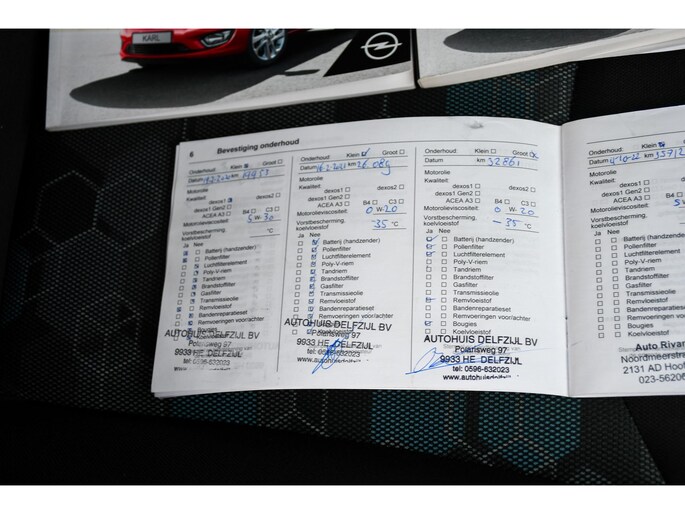 KARL
6 Bevestiging onderhoud
Onderhoud: Klein Groot
Datum km
Motorolie
Kwaliteit:
dexos1 dexos2
dexos1 Gen2
ACEA A3 B4 C3
Motorolieviscositeit: 5 W-30
Vorstbescherming,
koelvloeistof °C
Ja Nee
Batterij (handzender)
Pollenfilter
Luchtfilterelement
Poly-V-riem
Tandriem
Brandstoffilter
Gasfilter
Transmissieolie
Remvloeistof
Bandenreparatieset
Remvoeringen voor/achter
Bougies
Koelvloeistof
AUTOHUIS DELFZIJL BV
Polarisweg 97
9933 HE DELFZIJL
tel: 0596-632023
Onderhoud: Klein Groot
Datum km 26.089
Motorolie
Kwaliteit:
dexos1 dexos2
dexos1 Gen2
ACEA A3 B4 C3
Motorolieviscositeit: 0 W-20
Vorstbescherming,
koelvloeistof -35 °C
Ja Nee
Batterij (handzender)
Pollenfilter
Luchtfilterelement
Poly-V-riem
Tandriem
Brandstoffilter
Gasfilter
Transmissieolie
Remvloeistof
Bandenreparatieset
Remvoeringen voor/achter
AUTOHUIS DELFZIJL BV
Polarisweg 97
9933 HE DELFZIJL
tel: 0596-632023
Onderhoud: Klein Groot
Datum km 32861
Motorolie
Kwaliteit:
dexos1 dexos2
dexos1 Gen2
ACEA A3 B4 C3
Motorolieviscositeit: 0 W-20
Vorstbescherming,
koelvloeistof -35 °C
Ja Nee
Batterij (handzender)
Pollenfilter
Luchtfilterelement
Poly-V-riem
Tandriem
Brandstoffilter
Gasfilter
Transmissieolie
Remvloeistof
Bandenreparatieset
Remvoeringen voor/achter
Bougies
Koelvloeistof
AUTOHUIS DELFZIJL BV
Polarisweg 97
9933 HE DELFZIJL
tel: 0596-632023
Onderhoud: Klein
Datum 4-10-22 km 35712
Motorolie
Kwaliteit:
dexos1
dexos1 Gen2
ACEA A3
Motorolieviscositeit:
Vorstbescherming,
koelvloeistof
Ja Nee
Batterij (handzender)
Pollenfilter
Luchtfilterelement
Poly-V-riem
Tandriem
Brandstoffilter
Gasfilter
Transmissieolie
Remvloeistof
Remvoeringen
Bougies
Koelvloeistof
Auto Rivar
2131 AD Hoof
023-56206